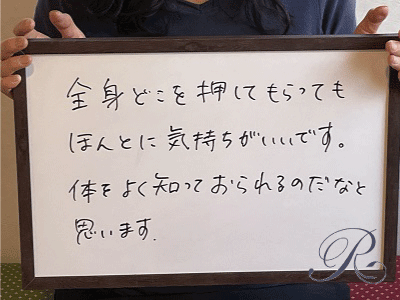 全身どこを押してもらっても
ほんとに気持ちがいいです。
体をよく知っておられるのだなと
思います.
R